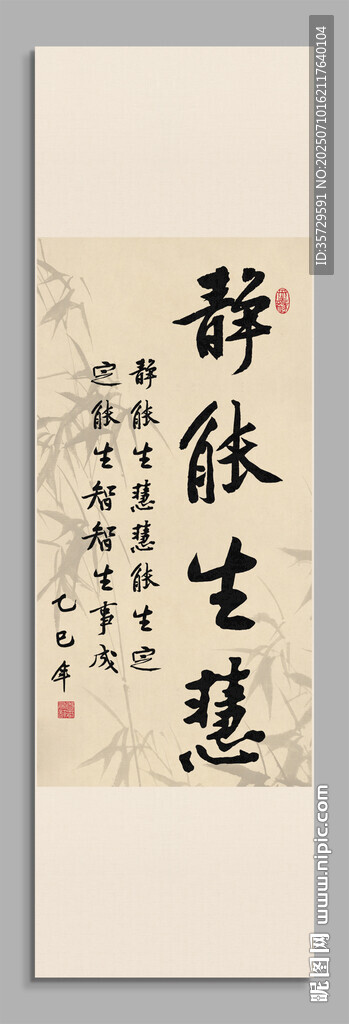 静能生慧
静能生慧慧能生定
定能生智智生事成
乙巳年
ID:35729591 NO:20250710162117640104
昵图网 www.nipic.com